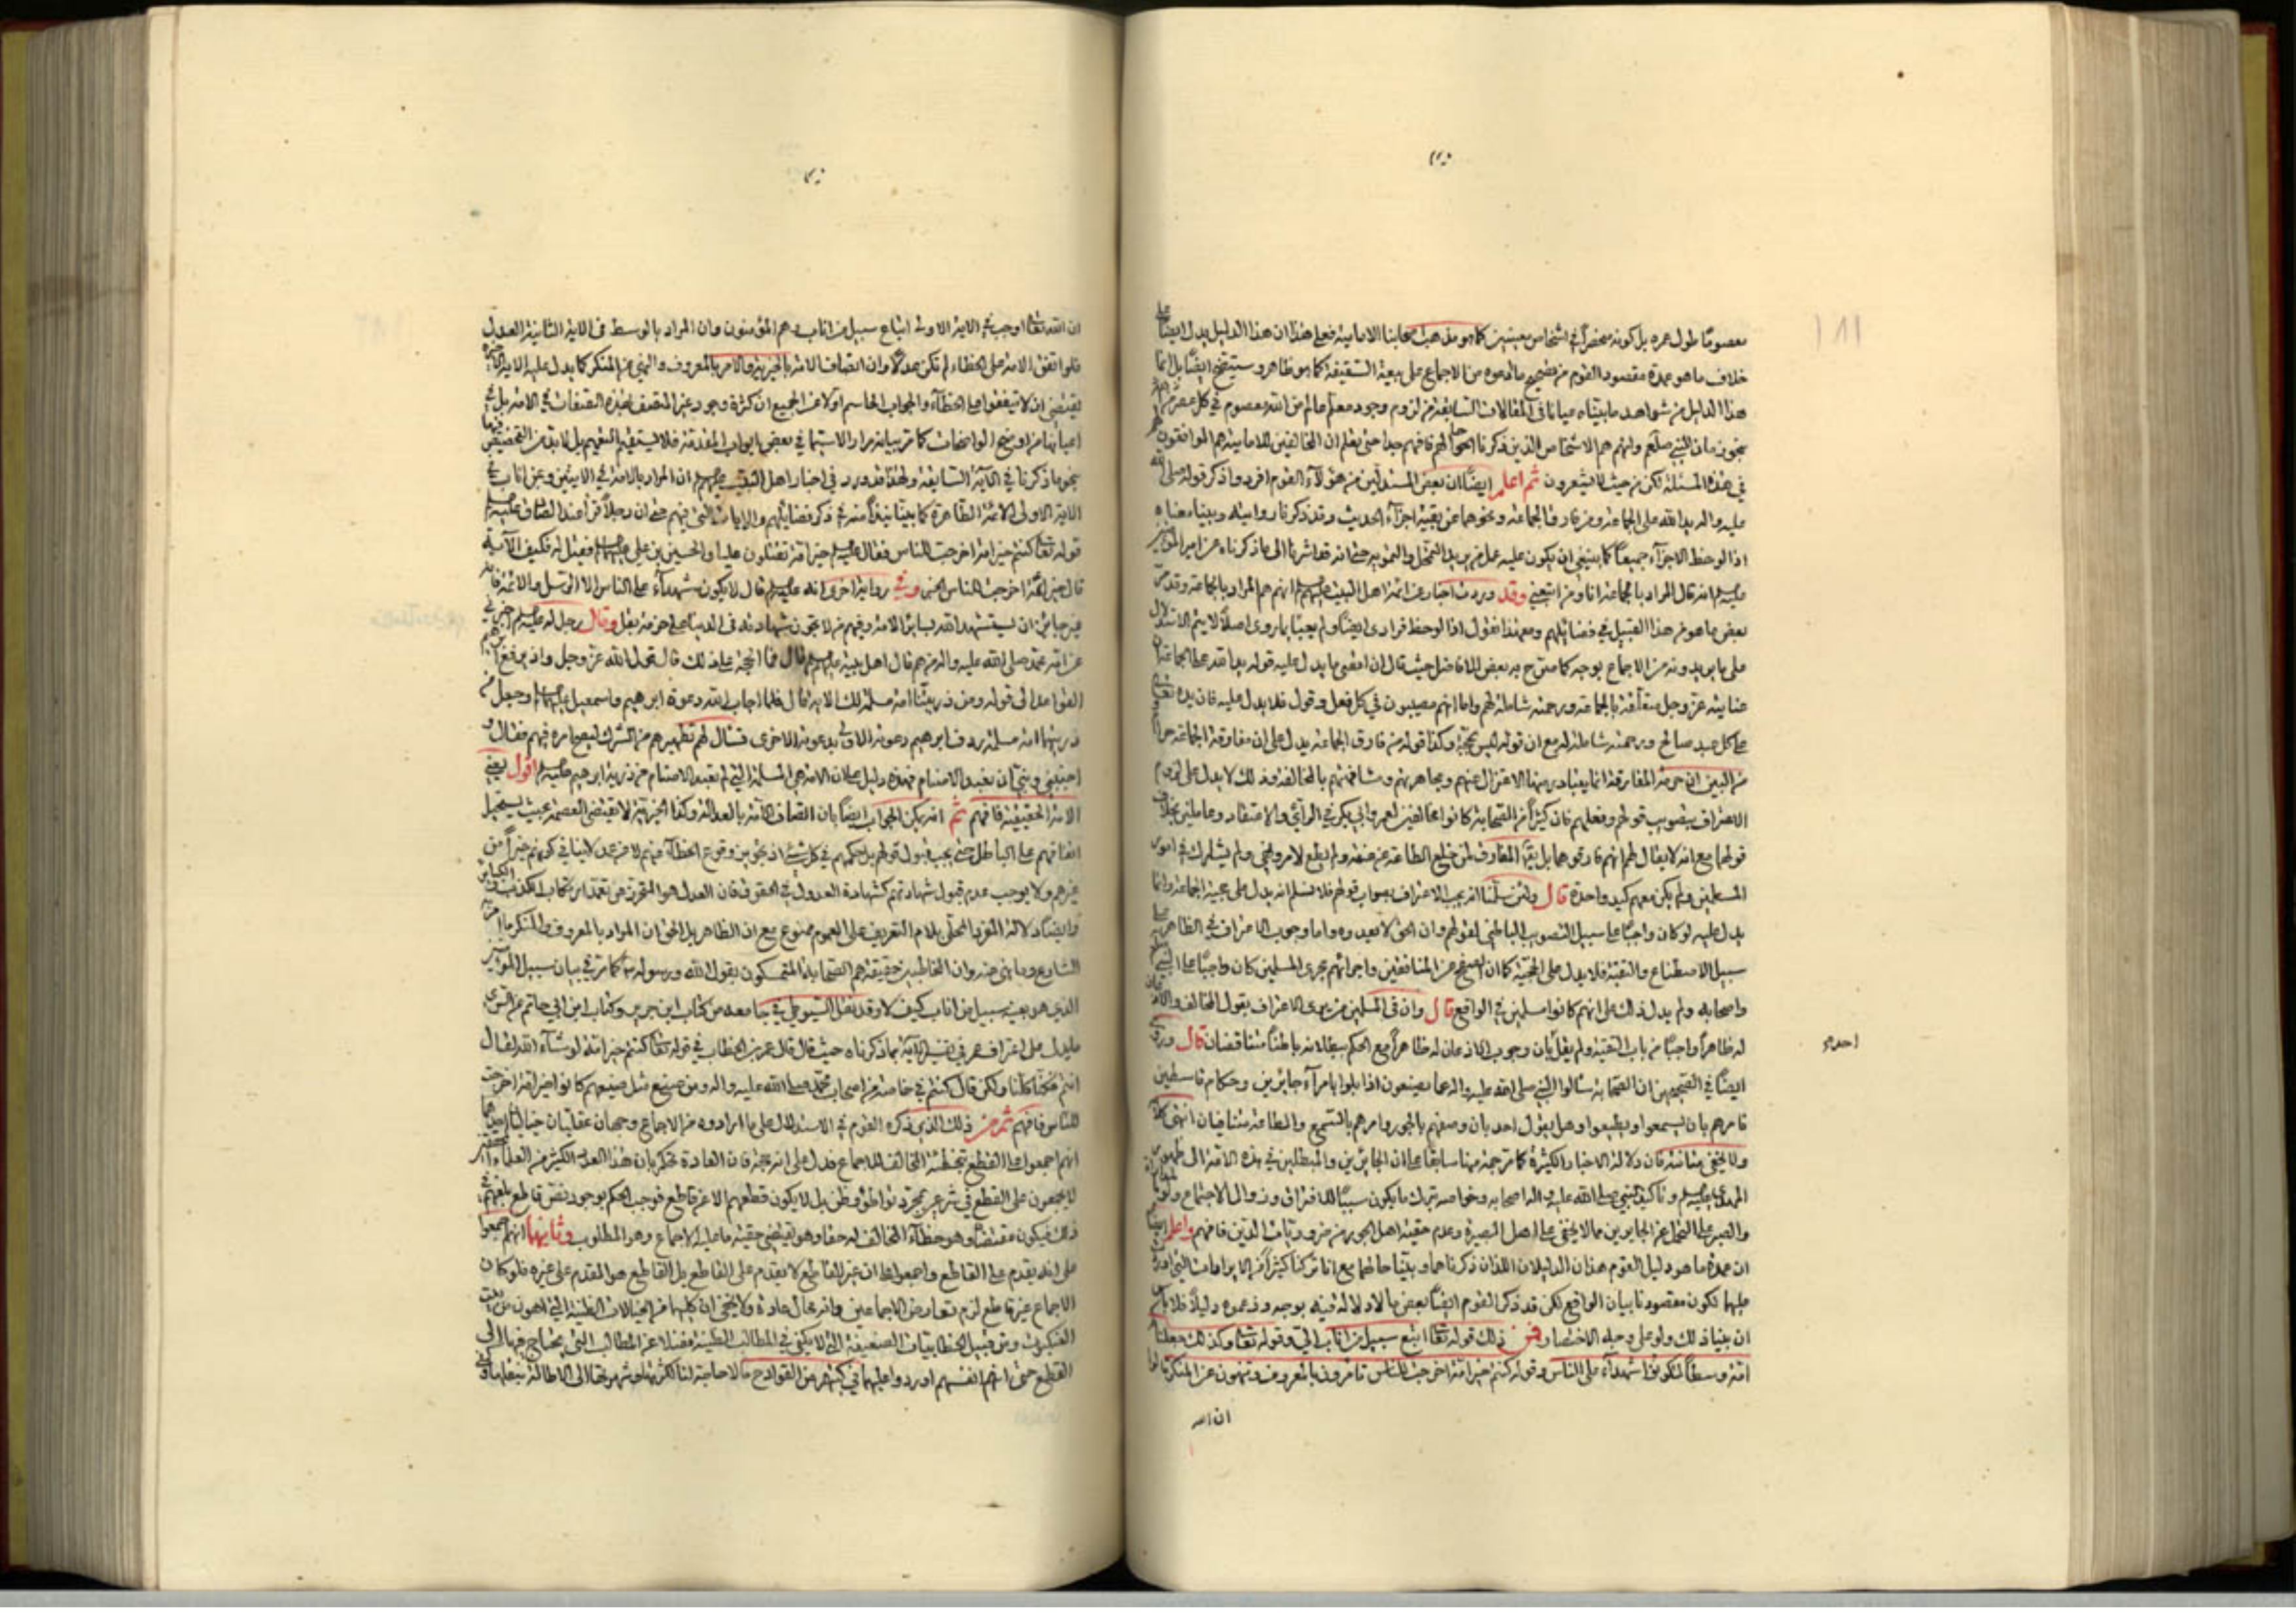 معصومًا طول عمره بل كونه منحصرًا في اشخاص معينين كما هو مذهب اصحابنا الامامية فعلى هذا ان هذا الدليل يدل ايضًا على
خلاف ما هو عمدة مقصود القوم من تصحيح ما ادعوه من الاجماع على بيعة السقيفة كما هو ظاهر وسيتضح ايضًا بل انما
هذا الدليل من شواهد ما بيناه عيانا في المقالات السابقة من لزوم وجود معلم عالم من الله معصوم في كل عصر
نحو زمان النبي صلعم وانهم هم الاشخاص الذين ذكرنا احوالهم فافهم جدا حتى تعلم ان المخالفين للامامية هم الموافقون لهم
في هذه المسئلة لكن من حيث لا يشعرون ثم اعلم ايضًا ان بعض المستدلين من هؤلاء القوم افرد واذكر قوله صلى الله
عليه واله يد الله على الجماعة ومن فارق الجماعة ونحوهما عن بقية اجزاء الحديث وقد ذكرنا رواميته وبينا معناه
اذا لوحظ الاجزاء جميعًا كما ينبغي ان يكون عليه عمل من يريد التمحل والتمويه حتى انه قد اشرنا الى ما ذكرناه عن امير المؤمنين
عليه السلام انه قال المراد بالجماعة انا ومن اتبعني وقد وردت اخبار عن ائمة اهل البيت عليهم السلام انهم هم المراد بالجماعة وقد مر
بعض ما هو من هذا القبيل في فضائلهم ومع هذا نقول اذا لوحظ فرادى ايضًا ولم يعبأ بما روى اصلا لا يتم الاستدلال
على ما يريدونه من الاجماع بوجه كما صرح به بعض الافاضل حيث قال ان اقصى ما يدل عليه قوله يد الله على الجماعة ان
عناية الله عز وجل متعلقة بالجماعة ورحمته شاملة لهم واما انهم مصيبون في كل فعل وقول فلا يدل عليه فان يده تعالى
على كل عبد صالح ورحمته شاملة له مع ان قوله ليس بحجة وكذا قوله من فارق الجماعة يدل على ان مفارقة الجماعة حرام
من البين ان حرمة المفارقة انما يتبادر منها الاعتزال عنهم ومجاهرتهم ومشاقتهم بالمخالفة وذلك لا يدل على لزوم
الاعتراف بتصويب قولهم وفعلهم فان كثيرًا من الصحابة كانوا مخالفين لعمر وابي بكر في الرأي والاعتقاد وعاملين بخلاف
قولهما مع انه لا يقال لهم انهم فارقوهما بل يقال المفارق لمن خلع الطاعة عن عنقه ولم يطع لامر ونهي ولم يشارك في امور
المسلمين ولم يكن معهم كيد واحدة قال ولئن سلمنا انه يجب الاعتراف بصواب قولهم فلا نسلم انه يدل على حجية الجماعة وانما
يدل عليه لو كان واجبًا على سبيل التصويب الباطني لقولهم وان الحق لا يعدوه واما وجوب الاعتراف في الظاهر على
سبيل الاصطناع والتقية فلا يدل على الحجية كما ان الصفح عن المنافقين واجرائهم مجرى المسلمين كان واجبًا على النبي
واصحابه ولم يدل ذلك على انهم كانوا مسلمين في الواقع قال وان في المسلمين من يرى الاعتراف بقول المخالف والاذعان
له ظاهرًا واجبًا من باب التقية ولم يقل بان وجوب الاذعان له ظاهرًا مع الحكم ببطلانه باطنًا متناقضان قال وروى
احدهم
ايضًا في الصحيحين ان الصحابة سألوا النبي صلى الله عليه واله عما يصنعون اذا بلوا بامراء جائرين وحكام قاسطين
فامرهم بان يسمعوا ويطيعوا وهل يقول احد بان وصفهم بالجور وامرهم بالسمع والطاعة متنافيان انتهى كلامه
ولا يخفى متانته فان دلالة الاخبار الكثيرة كما ترجمه منها سابقًا على ان الجائرين والمبطلين في هذه الامة الى ظهور
المهدي عليه السلام وتأكيد النبي صلى الله عليه واله اصحابه وخواصه بترك ما يكون سببًا للافتراق وزوال الاجتماع ولزوم
والصبر على التحمل عن الجابرين مما لا يخفى على اهل البصيرة وعدم حقية اهل الجور من ضروريات الدين فافهم واعلم ايضًا
ان عمدة ما هو دليل القوم هذان الدليلان اللذان ذكرناهما وبينا حالهما مع انا تركنا كثيرًا من الايرادات التي اوردت
عليها لكون مقصودنا بيان الواقع لكن قد ذكر القوم ايضًا بعض ما لا دلالة فيه بوجه وزعموه دليلًا فلا بأس
ان بينا ذلك ولو على وجه الاختصار فمن ذلك قوله تعالى اتبع سبيل من اناب الي وقوله تعالى وكذلك جعلناكم
امة وسطًا لتكونوا شهداء على الناس وقوله كنتم خير امة اخرجت للناس تأمرون بالمعروف وتنهون عن المنكر قالوا
ان الله
ان الله تعالى اوجب في الآية الاولى اتباع سبيل من اناب وهم المؤمنون وان المراد بالوسط في الآية الثانية العدول
فلو اتفق الامة على الخطاء لم تكن عدلًا وان اتصاف الامة بالخيرية والامر بالمعروف والنهي عن المنكر كما يدل عليه الآية الاخيرة
يقتضي ان لا يتفقوا على الخطاء والجواب الحاسم اولا عن الجميع ان كثرة وجود غير المتصف بهذه الصفات في الامة بل في
اعيانها من اوضح الواضحات كما مر بيانه مرارا لا سيما في بعض ابواب المقدمة فلا يستقيم التعميم بل لابد من التخصيص
نحو ما ذكرنا في الآية السابقة ولهذا قد ورد في اخبار اهل البيت عليهم السلام ان المراد بالامة في الآيتين وبمن اناب في
الآية الاولى الائمة الطاهرة كما بينا نبذًا منه في ذكر فضائلهم والآيات التي فيهم حتى ان رجلًا قرأ عند الصادق عليه السلام
قوله تعالى كنتم خير امة اخرجت للناس فقال عليه السلام خير امة تقتلون عليا والحسين بن علي عليهما السلام فقيل له فكيف الآية
قال خير ائمة اخرجت للناس الخبر وفي رواية اخرى انه عليه السلام قال لا يكون شهداء على الناس الا الرسل والائمة فانه
غير جائز ان يستشهد الله بسائر الامة وفيهم من لا تجوز شهادته في الدنيا على حزمة بقل وقال رجل له عليه السلام اخبرني
عن امة محمد صلى الله عليه واله من هم قال اهل بيته عليهم السلام قال فما الحجة على ذلك قال قول الله عز وجل واذ يرفع ابراهيم
القواعد الى قوله ومن ذريتنا امة مسلمة لك الآية قال فلما اجاب الله دعوة ابراهيم واسمعيل عليهما السلام وجعل من
ذريتهما امة مسلمة ردف ابراهيم دعوته الاولى بدعوته الاخرى فسأل لهم تطهيرهم من الشرك ليصح امره فيهم فقال و
اجنبني وبني ان نعبد الاصنام فهذه دليل على ان الامة هي المسلمة التي لم تعبد الاصنام من ذرية ابراهيم عليه السلام اقول يعني
الامة الحقيقية فافهم ثم انه يمكن الجواب ايضًا بان اتصاف الامة بالعدالة وكذا الخيرية لا تقتضي العصمة بحيث يستحيل
اتفاقهم على الباطل حتى يجب قبول قولهم بل حكمهم في كل شيء اذ تجويز وقوع الخطاء منهم لا عن عمد لا ينافي كونهم خيرًا من
غيرهم ولا يوجب عدم قبول شهادتهم كشهادة العدول في الحقوق فان العدل هو المتحرز عن تعمد ارتكاب الكبائر
وايضًا دلالة المفرد المحلى بلام التعريف على العموم ممنوع مع ان الظاهر بل الحق ان المراد بالمعروف والمنكر ما امر به
الشارع وما نهى عنه وان المخاطبين حقيقة هم الصحابة المتمسكون بقول الله ورسوله كما مر في بيان سبيل المؤمنين
الذي هو بعينه سبيل من اناب كيف لا وقد نقل السيوطي في جامعه من كتاب ابن جرير وكتاب ابن ابي حاتم عن السدي
ما يدل على اعتراف عمر في تفسير الآية بما ذكرناه حيث قال قال عمر بن الخطاب في قوله تعالى كنتم خير امة لو شاء الله لقال
انتم فكنا كلنا ولكن قال كنتم في خاصة من اصحاب محمد صلى الله عليه واله ومن صنع مثل صنيعهم كانوا خير امة اخرجت
للناس فافهم ثم من ذلك الذي ذكره القوم في الاستدلال على ما ارادوه من الاجماع وجهان عقليان خياليان احدهما
انهم اجمعوا على القطع بتخطئة المخالف للاجماع فدل على انه حجة فان العادة تحكم بان هذا العدد الكثير من العلماء
لا يجمعون على القطع في شرعي بمجرد تواطؤ وظن بل لا يكون قطعهم الا عن قاطع فوجب الحكم بوجود نص قاطع بلغهم في
ذلك فيكون مقتضاه وهو خطاء المخالف له حقا وهو يقتضي حقية ما عليه الاجماع وهو المطلوب وثانيهما انهم اجمعوا
على انه يقدم على القاطع واجمعوا على ان غير القاطع لا يقدم على القاطع بل القاطع هو المقدم على غيره فلو كان
الاجماع غير قاطع لزم تعارض الاجماعين وانه محال عادة ولا يخفى ان كليهما من الخيالات الظنية التي اهون من بيت
العنكبوت ومن قبيل الخطابيات الضعيفة التي لا يكفي في المطالب الظنية فضلا عن المطالب التي يحتاج فيها الى
القطع حتى انهم انفسهم اوردوا عليهما في كتبهم من القوادح ما لا حاجة لنا لكثرتها وشهرتها الى الاطالة بنقلها